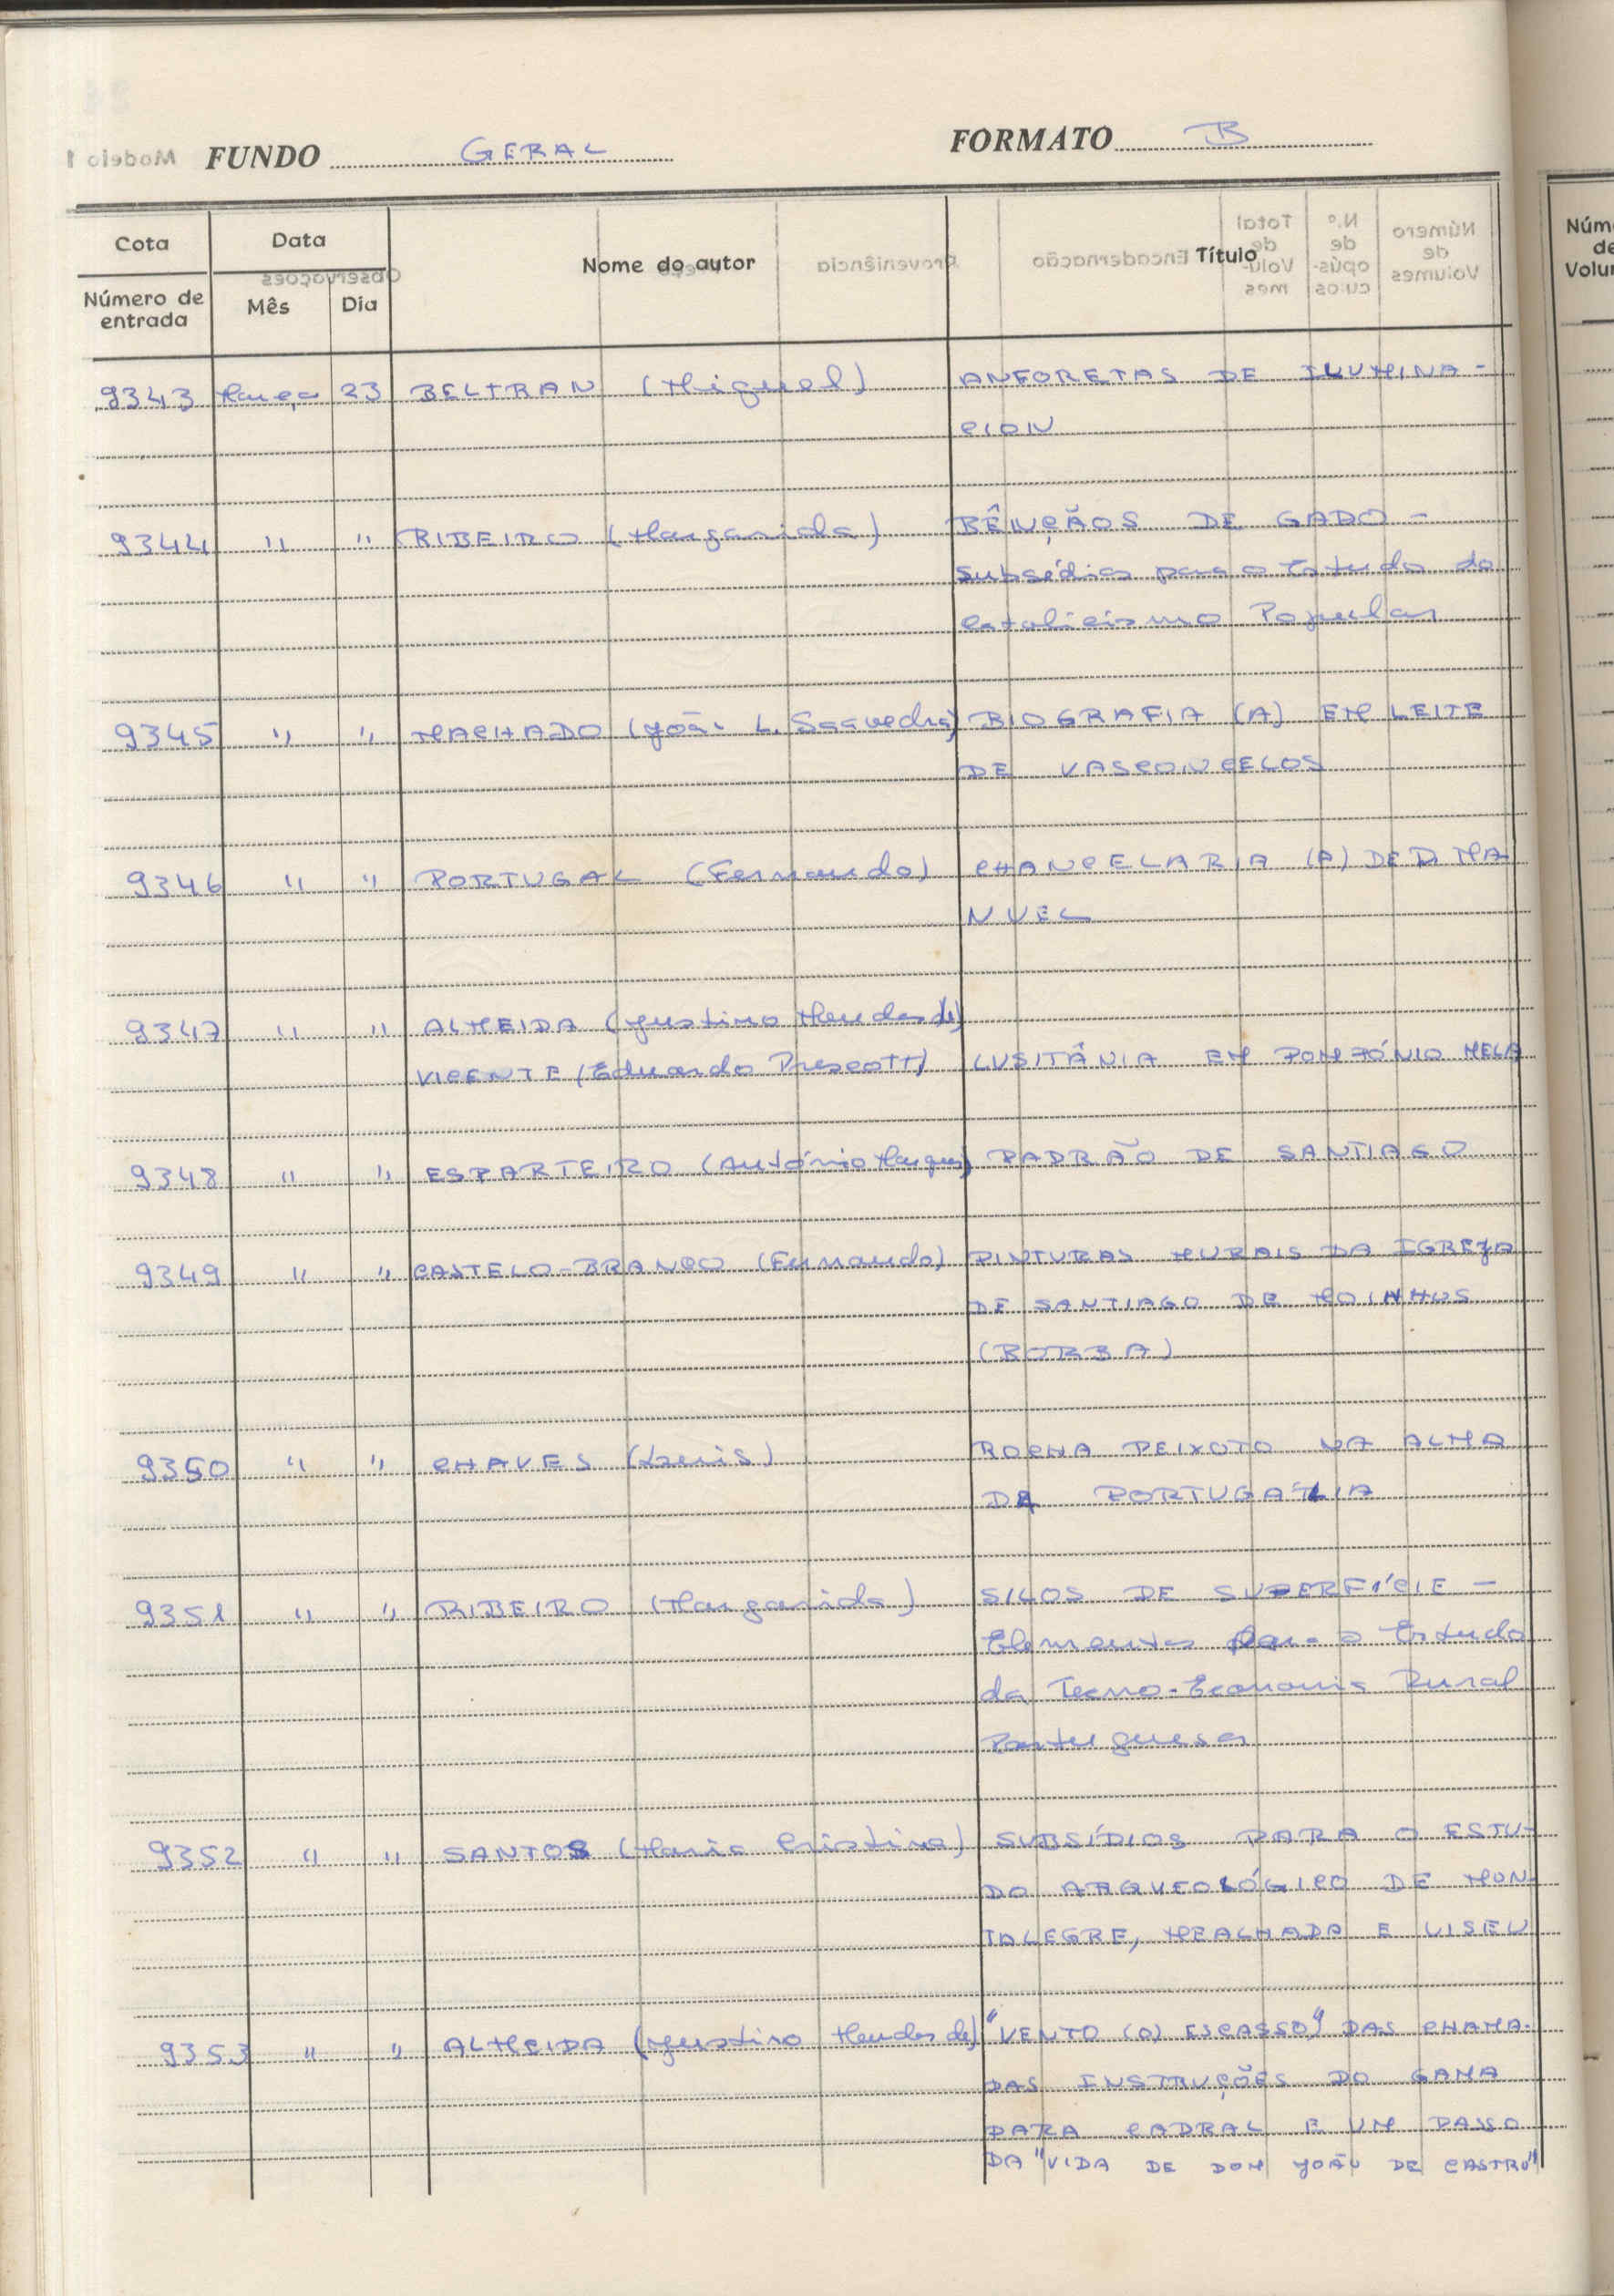 FUNDO GERAL FORMATO B
Cota Data Nome do autor Título
Número de entrada Mês Dia
9343 Março 23 BELTRAN (Miguel) ANFORETAS DE ILUMINA-
CION
9344 " " RIBEIRO (Margarida) BÊNÇÃOS DE GADO -
Subsédios para o Estudo do
Catolicismo Popular
9345 " " MACHADO (João L. Saavedra) BIOGRAFIA (A) EM LEITE
DE VASCONCELOS
9346 " " PORTUGAL (Fernando) CHANCELARIA (A) DE D. MA
NUEL
9347 " " ALMEIDA (Justino Mendes de)
VICENTE (Eduardo Prescott) LUSITÂNIA EM POMPÓNIO MELA
9348 " " ESPARTEIRO (António Marques) PADRÃO DE SANTIAGO
9349 " " CASTELO-BRANCO (Fernando) PINTURAS MURAIS DA IGREJA
DE SANTIAGO DE MOINHOS
(BORBA)
9350 " " CHAVES (Luis) ROCHA PEIXOTO NA ALMA
DA PORTUGÁLIA
9351 " " RIBEIRO (Margarida) SILOS DE SUPERFÍCIE -
Elementos para o Estudo
da Tecno-Economia Rural
Portuguesa
9352 " " SANTOS (Maria Cristina) SUBSÍDIOS PARA O ESTU-
DO ARQUEOLÓGICO DE MON-
TALEGRE, MEALHADA E VISEU
9353 " " ALMEIDA (Justino Mendes de) "VENTO (O) ESCASSO" DAS CHAMA-
DAS INSTRUÇÕES DO GAMA
PARA CABRAL E UM PASSO
DA "VIDA DE DOM JOÃO DE CASTRO"